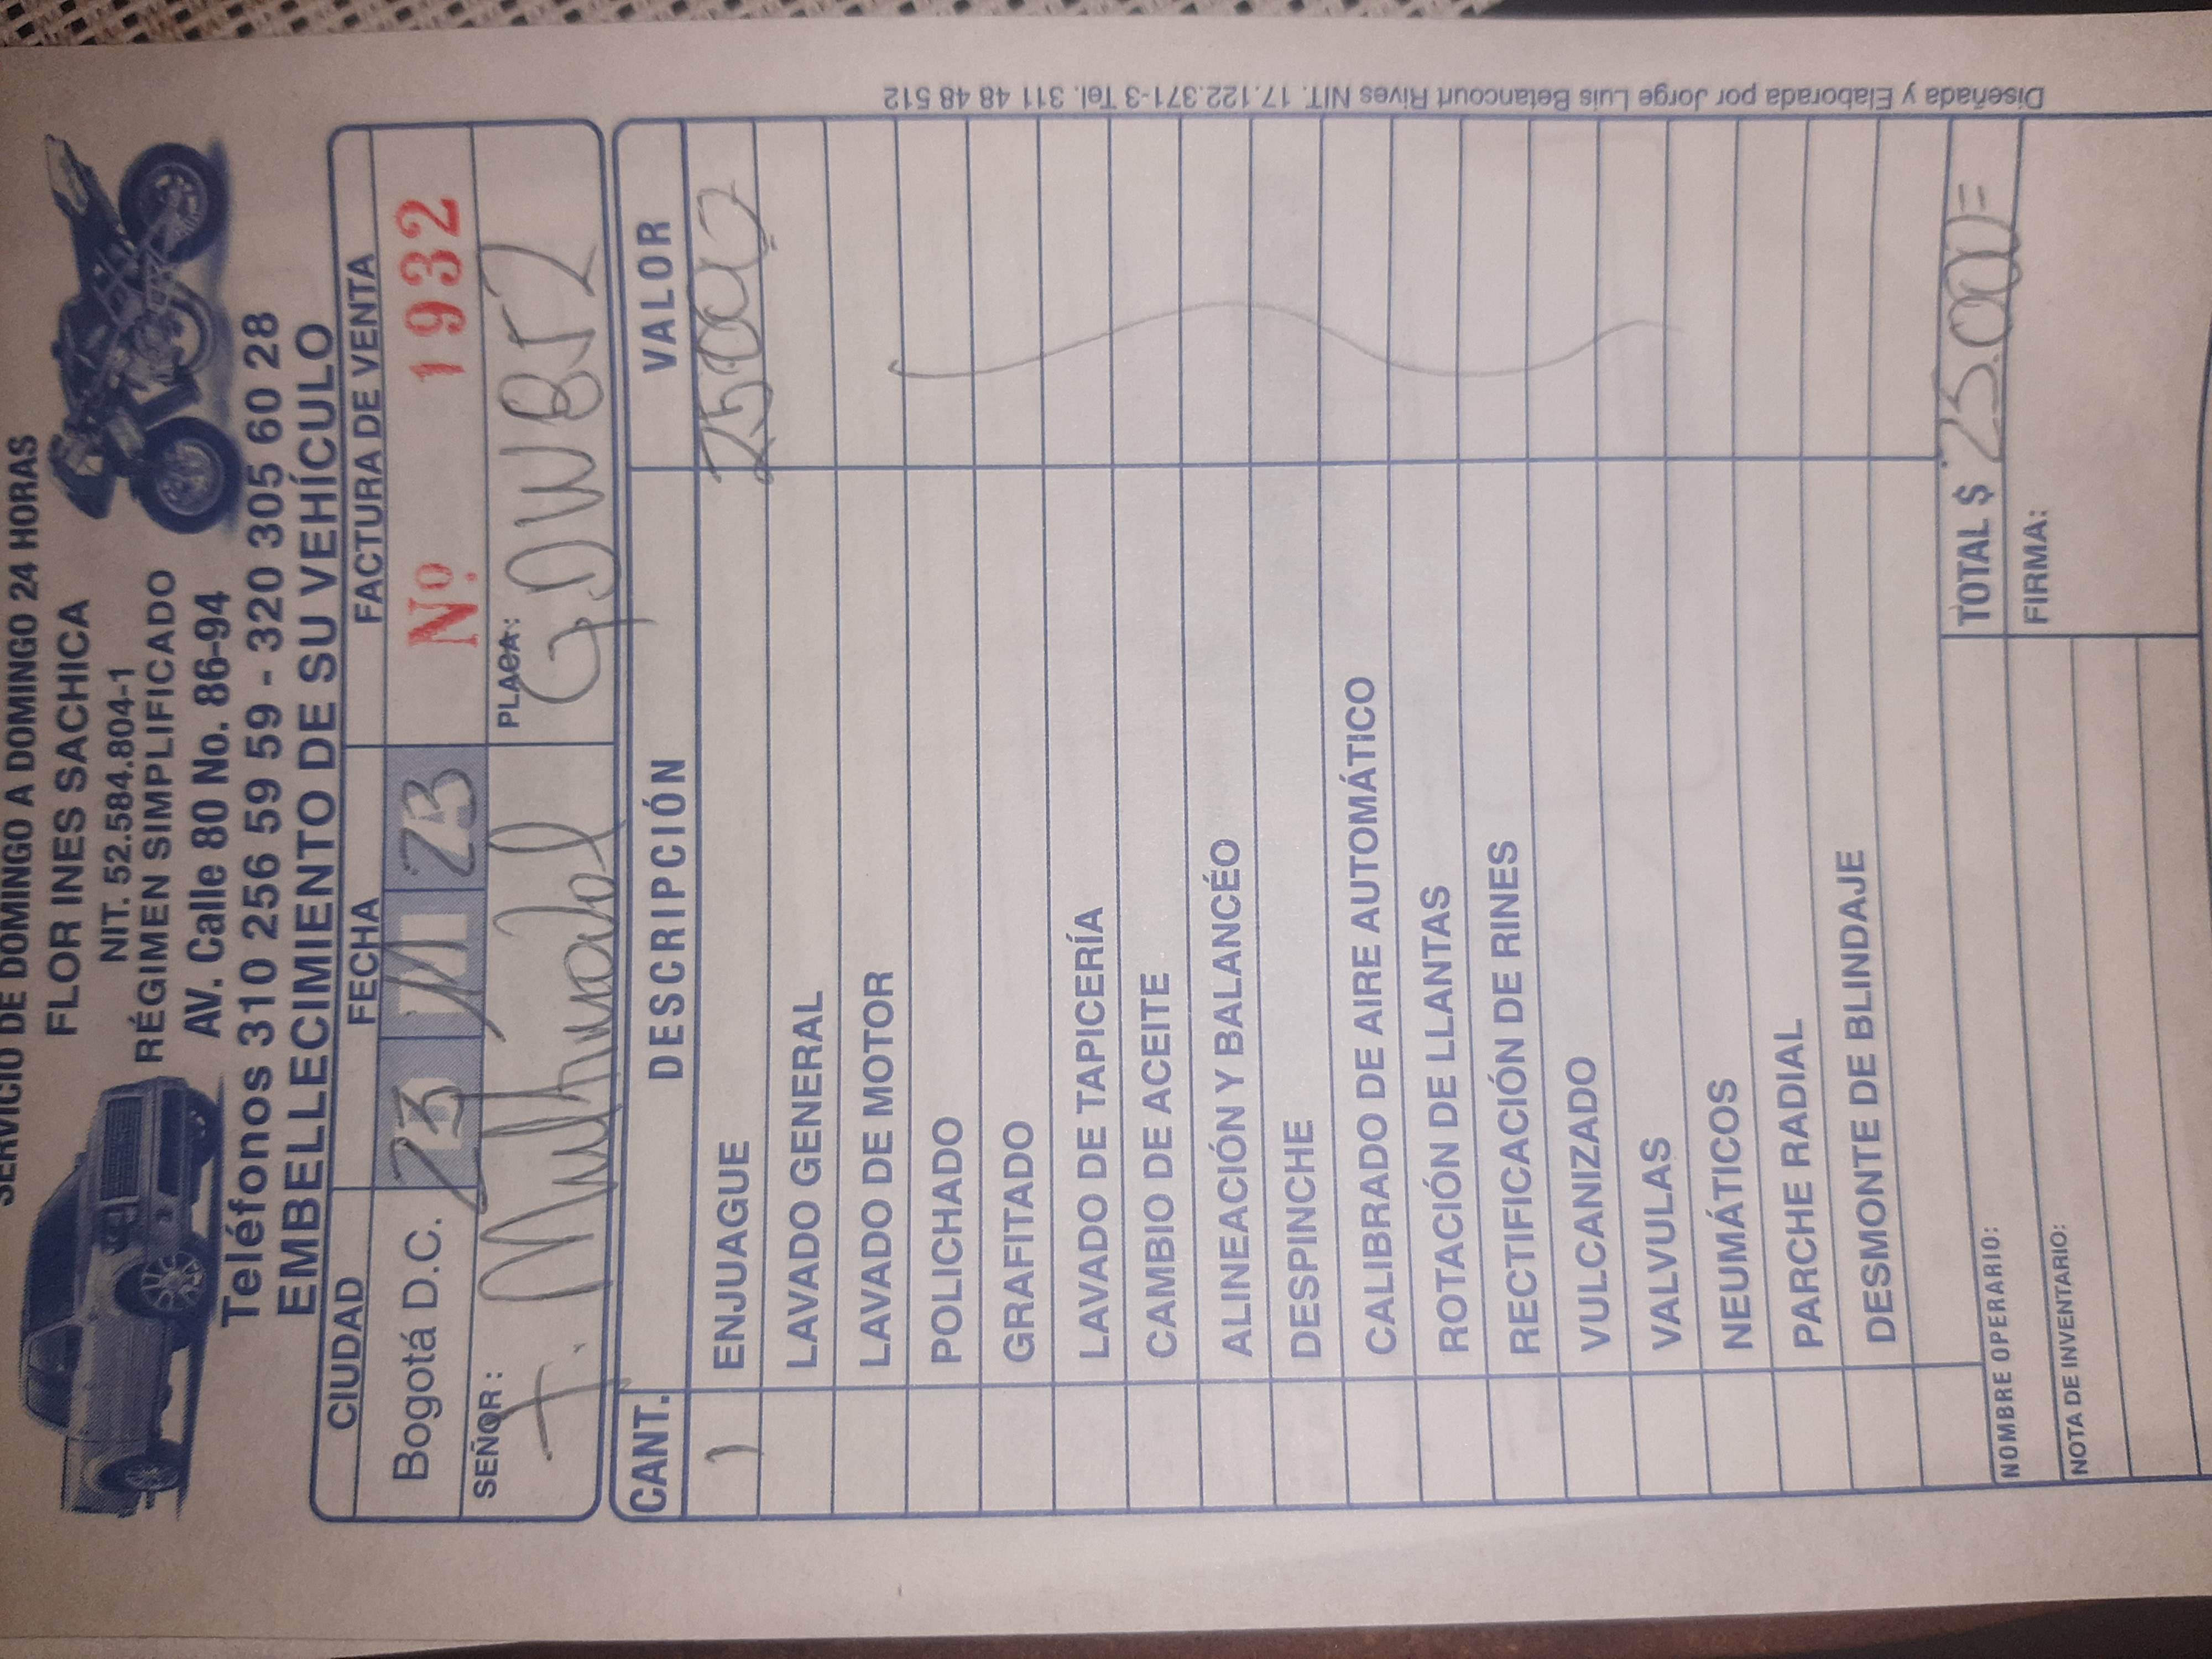 SERVICIO DE DOMINGO A DOMINGO 24 HORAS
FLOR INES SACHICA
NIT. 52.584.804-1
RÉGIMEN SIMPLIFICADO
AV. Calle 80 No. 86-94
Teléfonos 310 256 59 59 - 320 305 60 28
EMBELLECIMIENTO DE SU VEHÍCULO
CIUDAD FECHA FACTURA DE VENTA
Bogotá D.C. 23 11 23 Nº 1932
SEÑOR: PLACA:
CANT. DESCRIPCIÓN VALOR
1 ENJUAGUE 25000
LAVADO GENERAL
LAVADO DE MOTOR
POLICHADO
GRAFITADO
LAVADO DE TAPICERÍA
CAMBIO DE ACEITE
ALINEACIÓN Y BALANCÉO
DESPINCHE
CALIBRADO DE AIRE AUTOMÁTICO
ROTACIÓN DE LLANTAS
RECTIFICACIÓN DE RINES
VULCANIZADO
VALVULAS
NEUMÁTICOS
PARCHE RADIAL
DESMONTE DE BLINDAJE
TOTAL $ 25.000=
NOMBRE OPERARIO:
FIRMA:
NOTA DE INVENTARIO:
Diseñada y Elaborada por Jorge Luis Betancourt Rives NIT. 17.122.371-3 Tel. 311 48 48 512